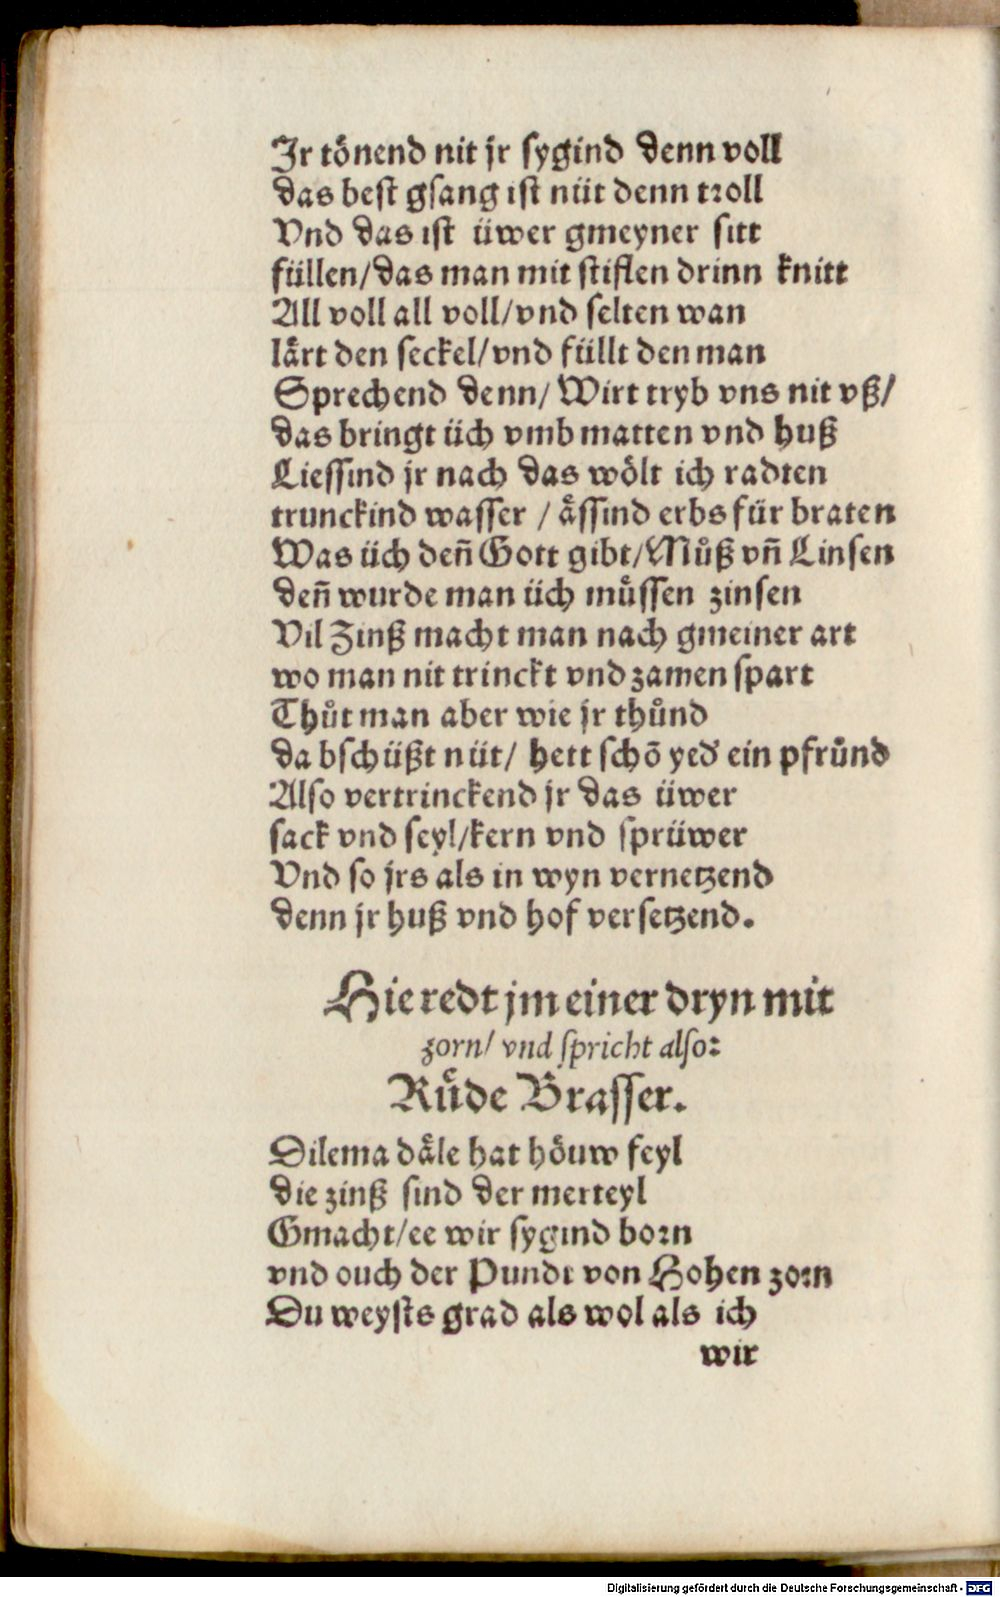 Jr tönend nit jr sygind denn voll
das best gsang ist nüt denn troll
Vnd das ist üwer gmeyner sitt
füllen/das man mit stiflen drinn knitt
All voll all voll/vnd selten wan
lårt den seckel/vnd füllt den man
Sprechend denn/ Wirt tryb vns nit vß/
das bringt üch vmb matten vnd huß
Liessind jr nach das wölt ich radten
trunckind wasser / åssind erbs für braten
Was üch deñ Gott gibt/Můß vñ Linsen
deñ wurde man üch müssen zinsen
Vil Zinß macht man nach gmeiner art
wo man nit trinckt vnd zamen spart
Thůt man aber wie jr thůnd
da bschüßt nüt/ hett schõ yed ein pfrůnd
Also vertrinckend jr das üwer
sack vnd seyl/kern vnd sprüwer
Vnd so jrs als in wyn vernetzend
denn jr huß vnd hof versetzend.
Hie redt jm einer dryn mit
zorn/ vnd spricht also:
Rüde Brasser.
Dilema dåle hat höuw feyl
die zinß sind der merteyl
Gmacht/ee wir sygind born
vnd ouch der Pundt von Hohen zorn
Du weysts grad als wol als ich
wir
Digitalisierung gefördert durch die Deutsche Forschungsgemeinschaft - DFG